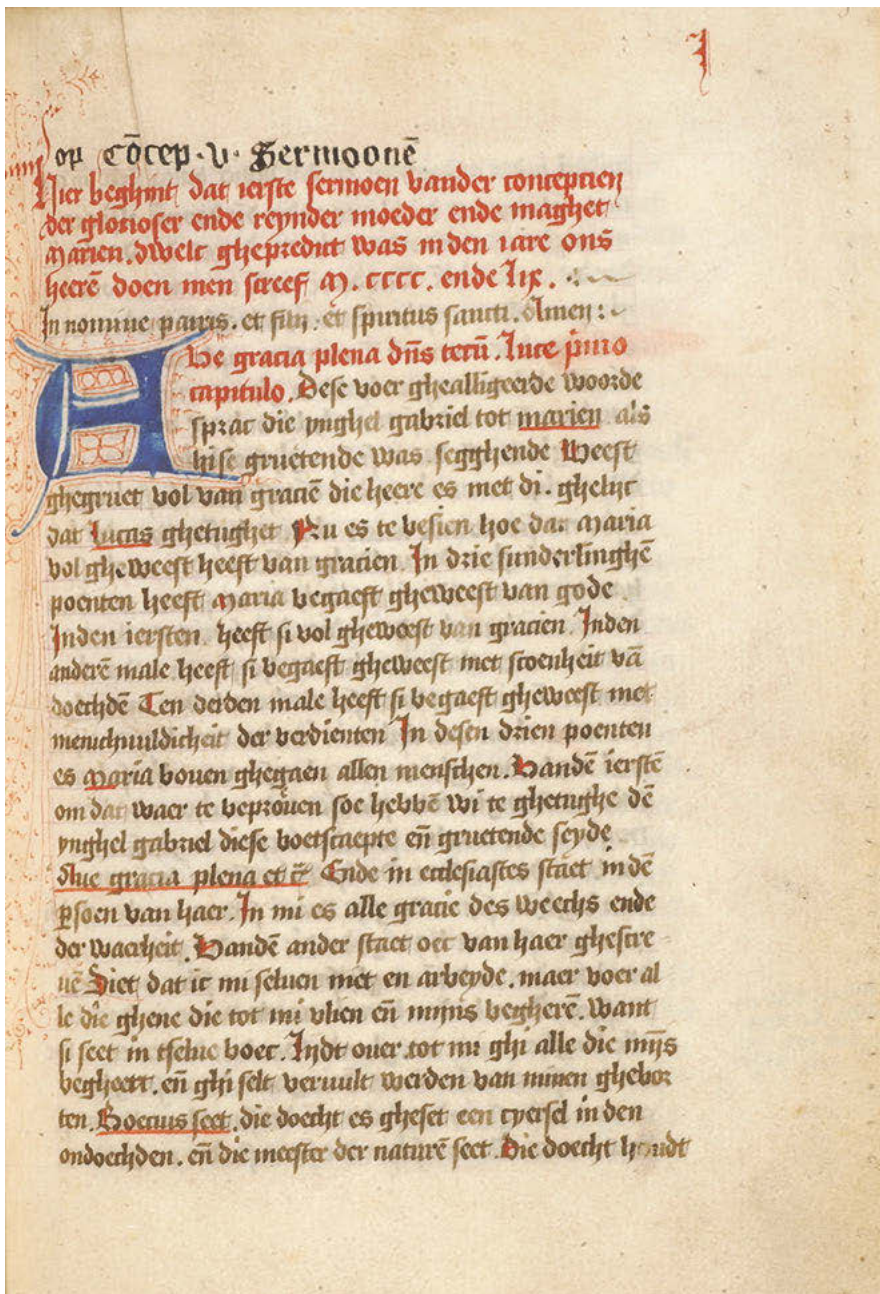 I
op cōcep · v · Sermoonē
Hier beghint dat ierste sermoen vander conceptien
der glorioser ende reynder moeder ende maghet
Marien. dwelc ghepredict was inden iare ons
heerē doen men screef M. cccc. ende lix.
In nomine patris. et filij. et spiritus sancti. Amen :
Aue gracia plena dn̄s tecū. Luce p̄mo
capitulo. Dese voer ghealligeerde woorde
sprac die ynghel gabriel tot marien als
hise gruetende was segghende Weest
ghegruet vol van graciē die heere es met di. ghelijc
dat Lucas ghetughet Nu es te besien hoe dat Maria
vol gheweest heeft van gracien. In drie sunderlinghē
poenten heeft Maria begaeft gheweest van gode
Inden iersten heeft si vol gheweest van gracien. Inden
anderē male heeft si begaeft gheweest met scoenheit vā
doechdē Ten derden male heeft si begaeft gheweest met
menichuuldicheit der verdienten In desen drien poenten
es Maria bouen ghegaen allen menschen. Vandē ierstē
om dat waer te beproūen soe hebbē wi te ghetughe dē
ynghel gabriel diese boetscaepte eñ gruetende seyde
Aue gracia plena et c̄ Ende in ecclesiastes staet in dē
ꝑsoen van haer. In mi es alle gracie des weechs ende
der waerheit. Vandē ander staet oec van haer ghescre
uē Siet dat ic mi seluen niet en arbeyde. maer voer al
le die ghene die tot mi vlien eñ mijns begherē. Want
si seet in tselue boec. Lijdt ouer tot mi ghi alle die mijs
begheert. eñ ghi selt veruult werden van minen ghebor
ten. Boecius seet. die doecht es gheset een cyersel in den
ondoechden. eñ die meester der naturē seet. Die doecht houdt